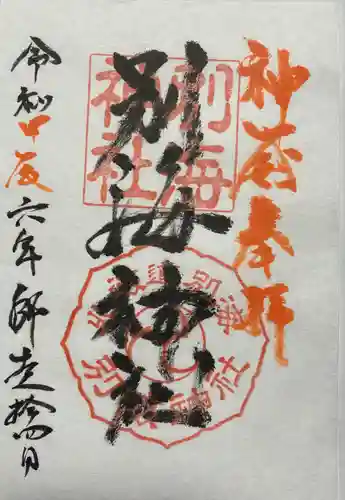 神 奉拝
別海神社
別海神社
別海神社
令和甲辰六年師走拾四日